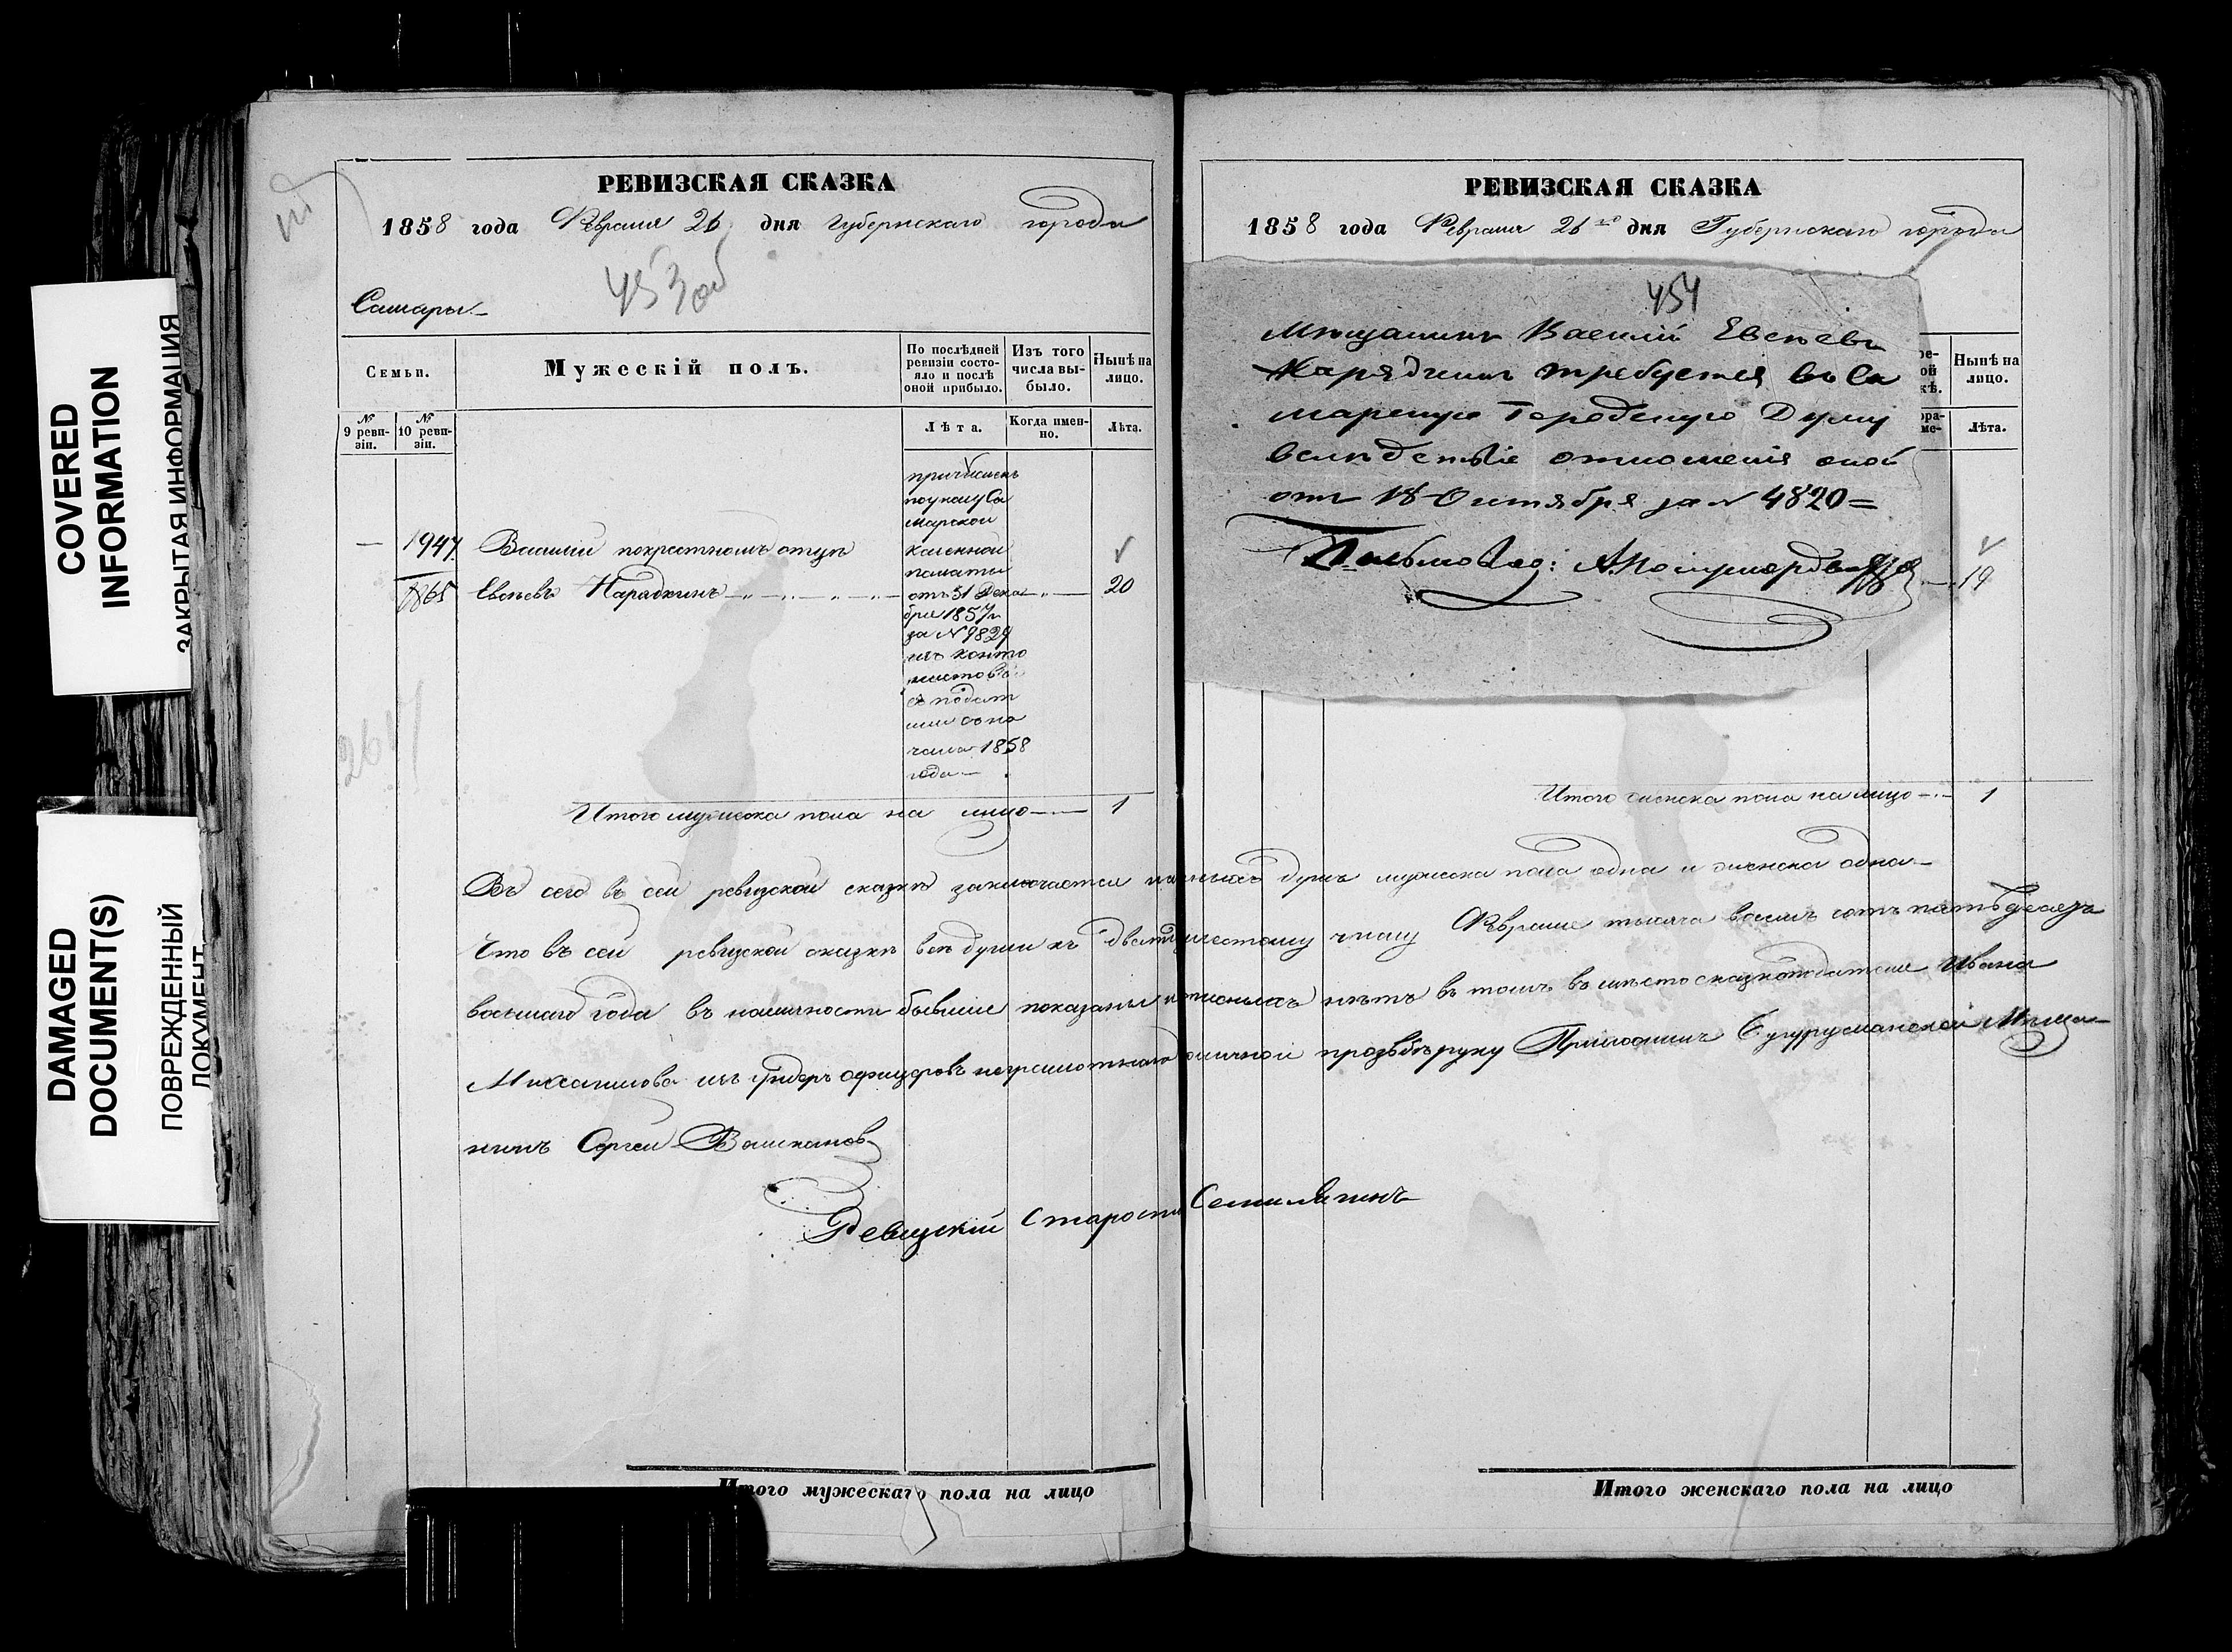 COVERED
INFORMATION
ЗАКРЫТАЯ ИНФОРМАЦИЯ
DAMAGED
DOCUMENT(S)
ПОВРЕЖДЕННЫЙ
ДОКУМЕНТ
РЕВИЗСКАЯ СКАЗКА
1858 года Февраля 26 дня Губернскаго города
453 об
Самары
Семьи.
Мужескій полъ.
По послѣдней ревизіи состояло и послѣ оной прибыло.
Изъ того числа выбыло.
Нынѣ на лицо.
№ 9 ревизіи.
№ 10 ревизіи.
Лѣта.
Когда именно.
Лѣта.
причисленъ
по указу Са
марской
— 1947. Василій по крестномъ отцѣ
казенной
палаты
1865 Евсѣевъ Нарядкинъ
отъ 31 Дека
20
бря 1857 г.
за № 9829
изъ канто
нистовъ
съ подат
ми съ на
чала 1858
года
Итого мужеска пола на лицо 1
РЕВИЗСКАЯ СКАЗКА
1858 года Февраля 26го дня Губернскаго города
454
Мещанинъ Василій Евсеевъ
Нарядкинъ требуется въ Са
марскую Городскую Думу
вслѣдствіе отношенія оной
отъ 18 Октября за № 4820
Нынѣ на лицо.
Лѣта.
19
Итого женска пола на лицо 1
сего въ сей ревизской сказкѣ заключается душъ мужеска пола одна и женска одна
Что въ сей ревизской сказкѣ всѣ души къ двадцать шестому числу Февраля тысяча восемь сотъ пятьдесятъ
восьмаго года въ наличности бывшіе показаны и нѣтъ въ томъ вмѣсто сказкоподателя Ивана
Михайлова изъ Ундеръ офицеровъ неграмотнаго личной прозьбѣ руку Приложилъ Бугурусланской Мѣща
нинъ Сергей
Ревизскій Староста
Итого мужескаго пола на лицо
Итого женскаго пола на лицо